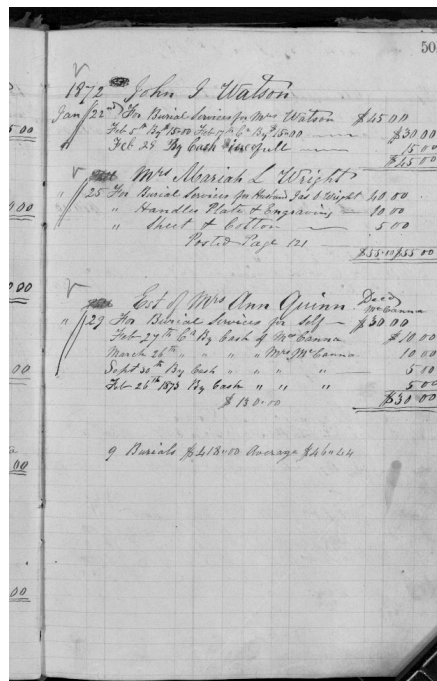 50
1872 John G Watson
Jan 22nd For Burial Services for Mrs Watson $45.00
Feb 5th By $15.00 Feb 7th Ca By $15.00 — $30.00
Feb 29 By Cash in full — 15.00
$45.00
Mrs Mariah L Wright
" 25 For Burial Services for Husband Jas O Wright 40.00
" Handles Plate & Engraving — 10.00
" Sheet & Cotton — 5.00
Posted Page 121
$55.00 $55.00
Est of Mrs Ann Quinn Decd
McCanna
" 29 For Burial Services for Self — $30.00
Feb 27th Ca By Cash of McCanna $10.00
March 26th " " " " Mrs McCanna 10.00
Sept 30th By Cash " " " " 5.00
Feb 26th 1873 By Cash " " " 5.00
$130.00 $30.00
9 Burials $418.00 Average $46.44
00
00
00
00
00
00